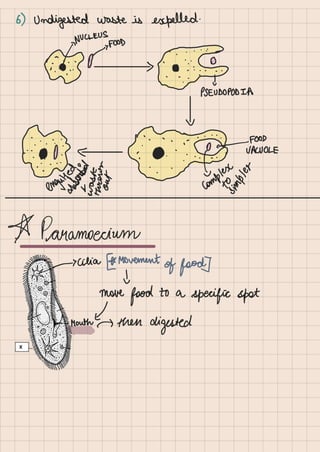 6) Undigested waste is expelled.
NUCLEUS
FOOD
PSEUDOPODIA
FOOD
VACUOLE
Complex
to
simpler
engulfed
absorbed &
waste
thrown
out
Paramoecium
Cilia [* Movement of food]
move food to a specific spot
Mouth → then digested
x